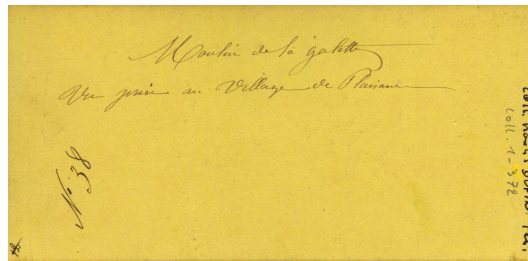 Moulin de la galette
Vue prise au Village de Plaisance
N° 38
Coll. 1-372